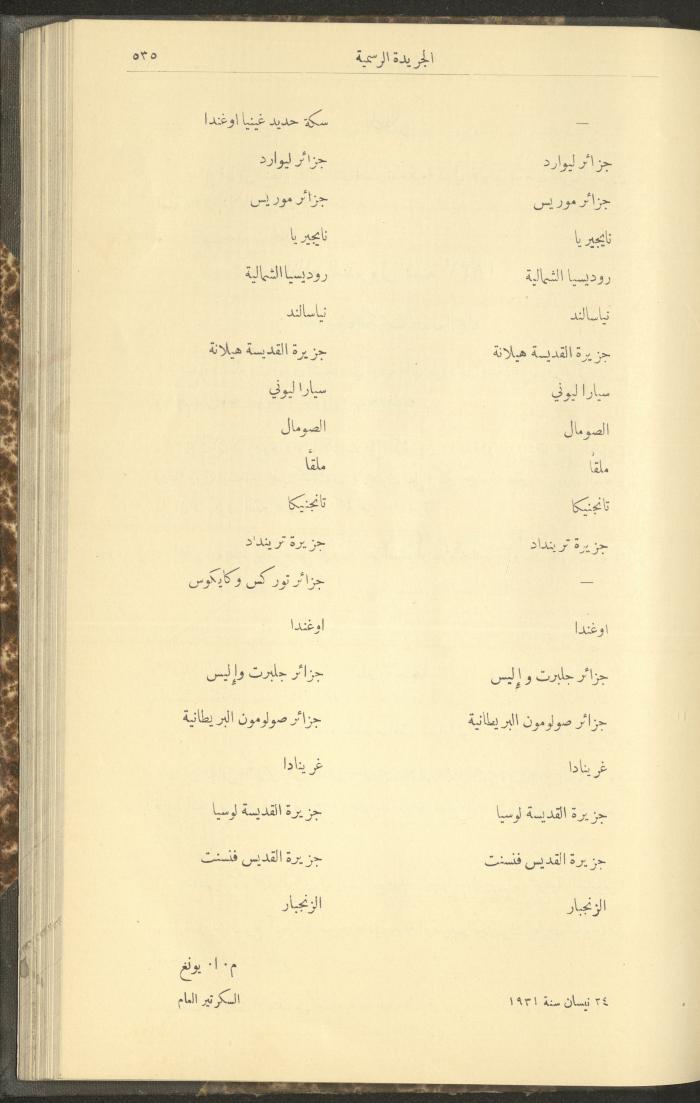 الجريدة الرسمية ٥٣٥
— سكة حديد غينيا اوغندا
جزائر ليوارد جزائر ليوارد
جزائر موريس جزائر موريس
نايجيريا نايجيريا
روديسيا الشمالية روديسيا الشمالية
نياسالند نياسالند
جزيرة القديسة هيلانة جزيرة القديسة هيلانة
سيارا ليوني سيارا ليوني
الصومال الصومال
ملقَّا ملقَّا
تانجنيكا تانجنيكا
جزيرة ترينداد جزيرة ترينداد
— جزائر توركس وكايكوس
اوغندا اوغندا
جزائر جلبرت وإليس جزائر جلبرت وإليس
جزائر صولومون البريطانية جزائر صولومون البريطانية
غرينادا غرينادا
جزيرة القديسة لوسيا جزيرة القديسة لوسيا
جزيرة القديس فنسنت جزيرة القديس فنسنت
الزنجبار الزنجبار
م٠ ا٠ يونغ
٢٤ نيسان سنة ١٩٣١ السكرتير العام